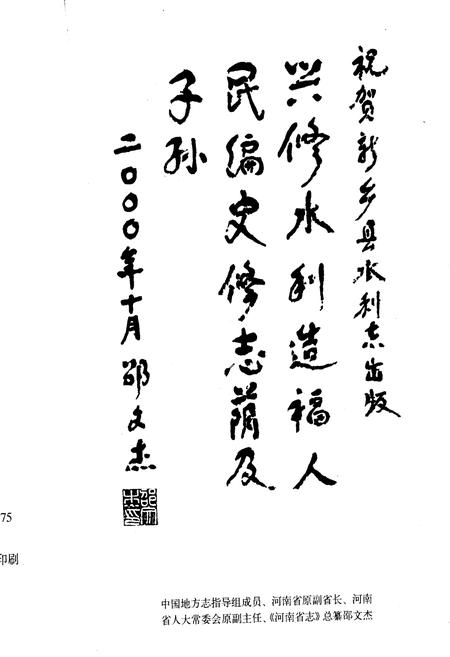 祝贺新乡县水利志出版
兴修水利造福人
民编史修志荫及
子孙
二〇〇〇年十月 邵文杰
75
印刷
中国地方志指导组成员、河南省原副省长、河南
省人大常委会原副主任、《河南省志》总纂邵文杰